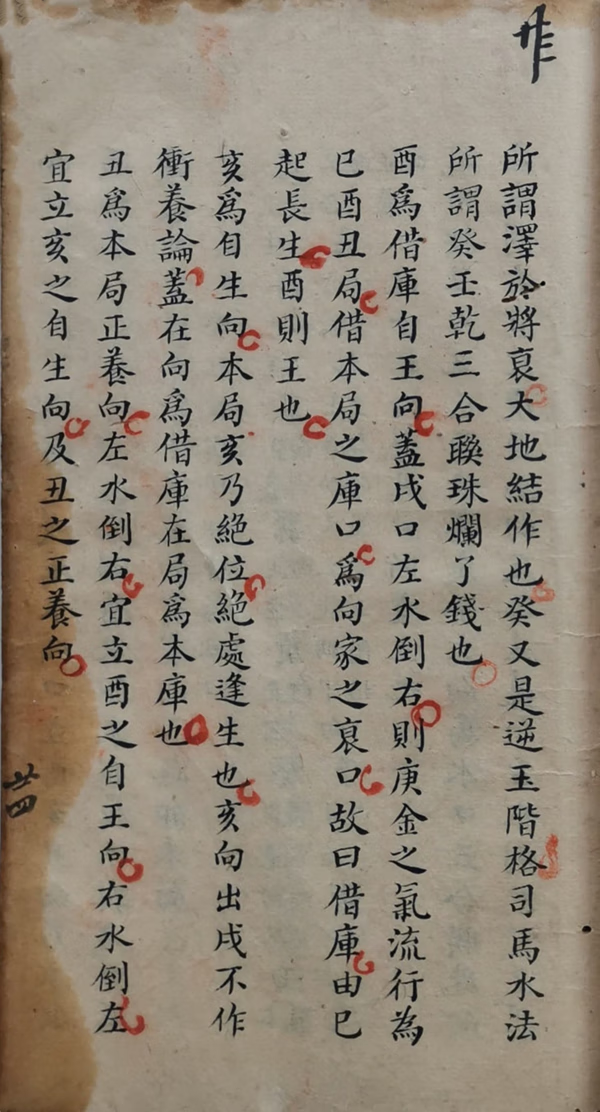 所謂澤於將衰大地結作也癸又是逆玉階格司馬水法
所謂癸壬乾三合聯珠爛了錢也
酉爲借庫自王向蓋戌口左水倒右則庚金之氣流行為
巳酉丑局借本局之庫口爲向家之衰口故曰借庫由巳
起長生酉則王也
亥爲自生向本局亥乃絕位絕處逢生也亥向出戌不作
衝養論蓋在向爲借庫在局爲本庫也
丑爲本局正養向左水倒右宜立酉之自王向右水倒左
宜立亥之自生向及丑之正養向
廿四